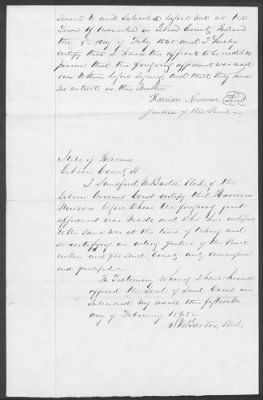 Sworn to and Subscribed before me at the
Town of Owensville in Gibson County Indiana
the 8 day of Feby 1865 and I hereby
certify that I know the affiants to be credible
persons that the foregoing affidavit was read
over to them before signing and that they have
no interest in this matter
Harrison Newsom Seal
Justice of the Peace
State of Indiana
Gibson County SS
I Clerk of the
Gibson Circuit Court certify that Harrison
Newsom before whom the foregoing joint
affidavit was made and who has certified
to the same was at the time of taking and
so certifying an acting Justice of the Peace
within and for said County duly commissioned
and qualified
In Testimony Whereof I have hereunto
affixed the Seal of said Court and
Subscribed my name this fifteenth
day of February 1865
Clerk